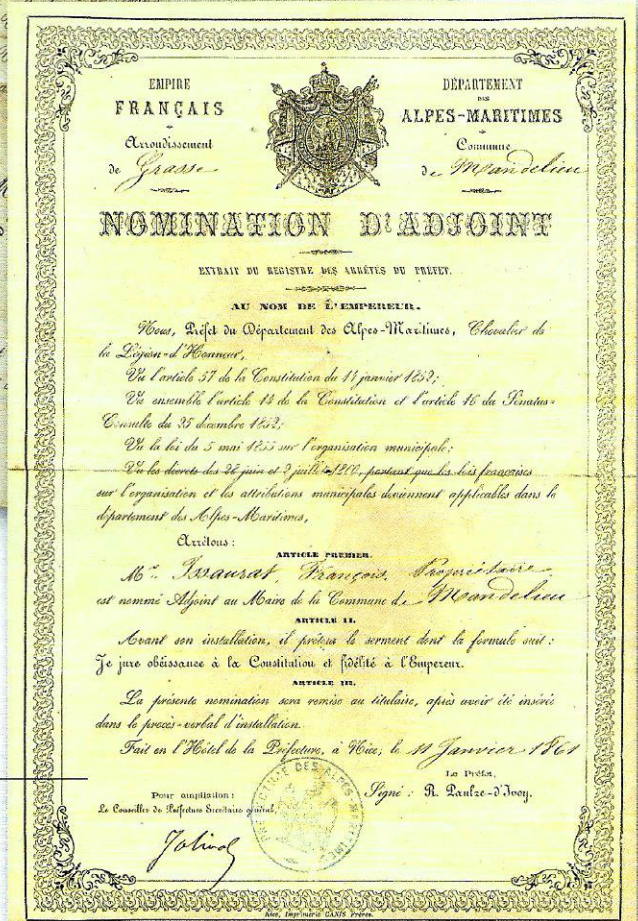 EMPIRE
FRANÇAIS
Arrondissement
de Grasse
DÉPARTEMENT
DES
ALPES-MARITIMES
Commune
de Mandelieu
NOMINATION D'ADJOINT
EXTRAIT DU REGISTRE DES ARRÊTÉS DU PRÉFET.
AU NOM DE L'EMPEREUR.
Nous, Préfet du Département des Alpes-Maritimes, Chevalier de
la Légion-d'Honneur,
Vu l'article 57 de la Constitution du 14 janvier 1852;
Vu ensemble l'article 14 de la Constitution et l'article 16 du Sénatus-
Consulte du 25 décembre 1852;
Vu la loi du 5 mai 1855 sur l'organisation municipale;
Vu les décrets des 26 juin et 2 juillet 1860, portant que les lois françaises
sur l'organisation et les attributions municipales deviennent applicables dans le
département des Alpes-Maritimes,
Arrêtons:
ARTICLE PREMIER.
Mr Issaurat, François, Propriétaire
est nommé Adjoint au Maire de la Commune de Mandelieu
ARTICLE II.
Avant son installation, il prêtera le serment dont la formule suit:
Je jure obéissance à la Constitution et fidélité à l'Empereur.
ARTICLE III.
La présente nomination sera remise au titulaire, après avoir été insérée
dans le procès-verbal d'installation.
Fait en l'Hôtel de la Préfecture, à Nice, le 11 Janvier 1861
Le Préfet,
Signé: R. Paulze-d'Ivoy.
Pour ampliation:
Le Conseiller de Préfecture Secrétaire général,
PRÉFECTURE DES ALPES MARITIMES
Nice, Imprimerie CANIS Frères.